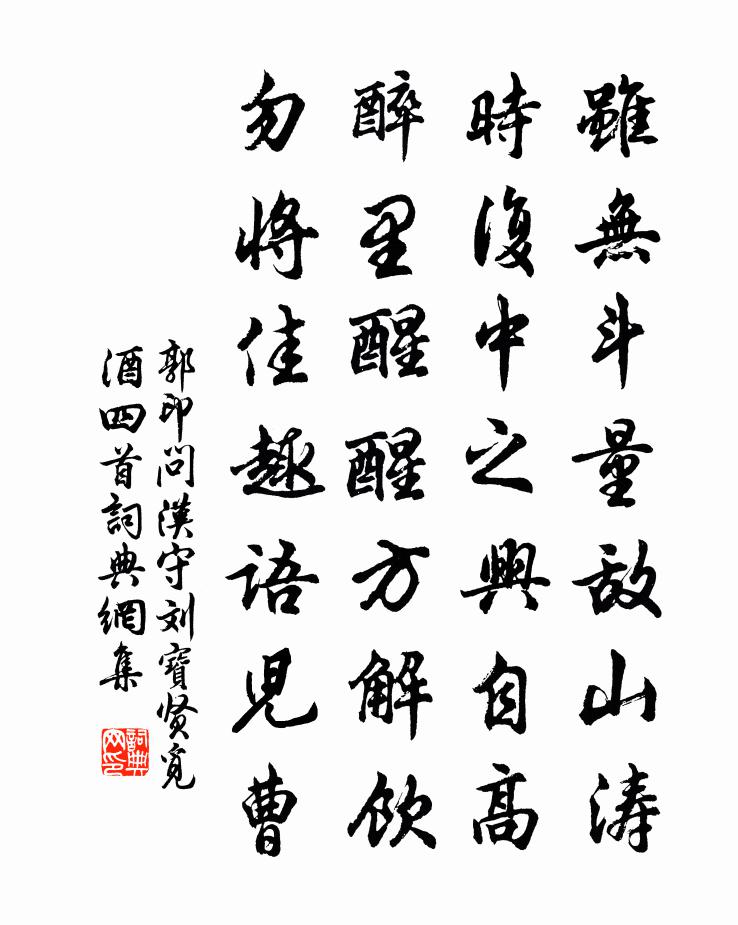 雖無斗量敌山涛
時復中之興自高
醉里醒醒方解飲
勿将佳趣語児曹
郭印問漢守刘寶贤覓
酒四首詞典網集
詞典
网印